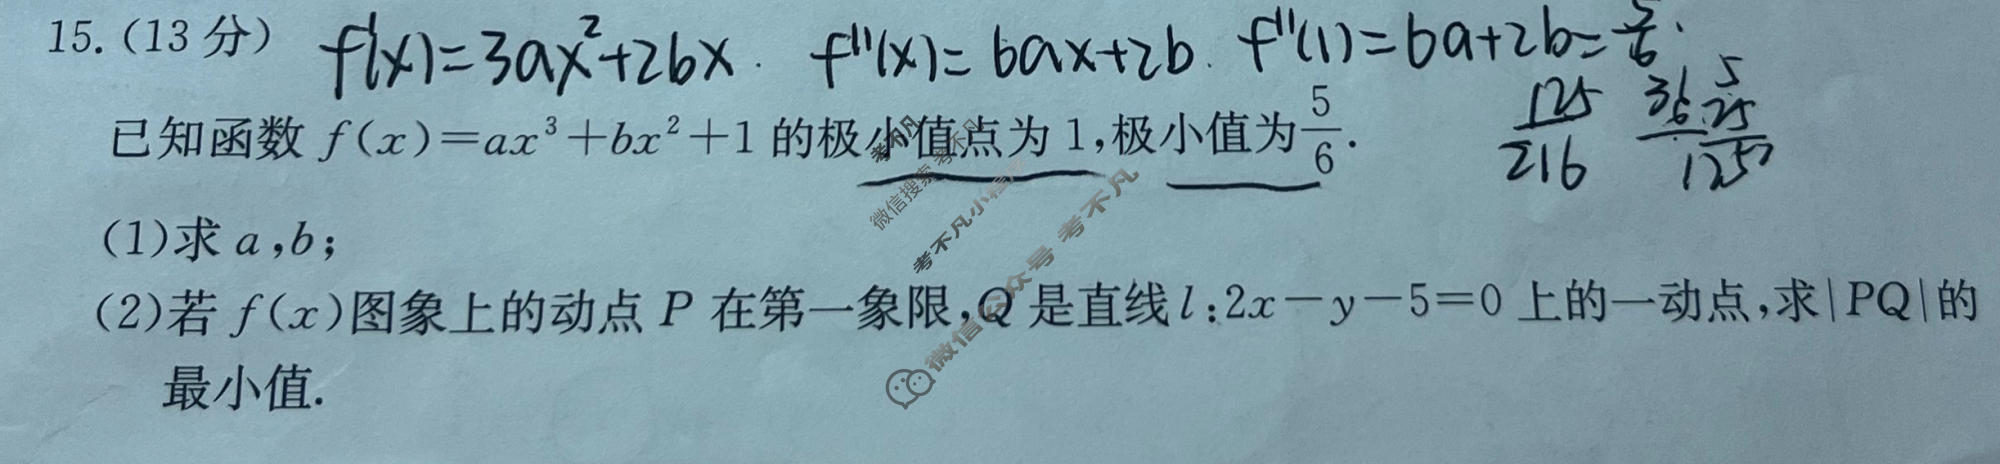 15.(13分) f'(x)=3ax²+2bx. f''(x)=6ax+2b. f''(1)=6a+2b=5/6.
125/216 36 5
25
125
已知函数 f(x)=ax³+bx²+1 的极小值点为 1,极小值为 5/6.
(1)求 a,b;
(2)若 f(x)图象上的动点 P 在第一象限,Q 是直线 l:2x-y-5=0 上的一动点,求|PQ|的
最小值.
考不凡
微信搜索 考不凡
考不凡小程序
微信公众号 考不凡